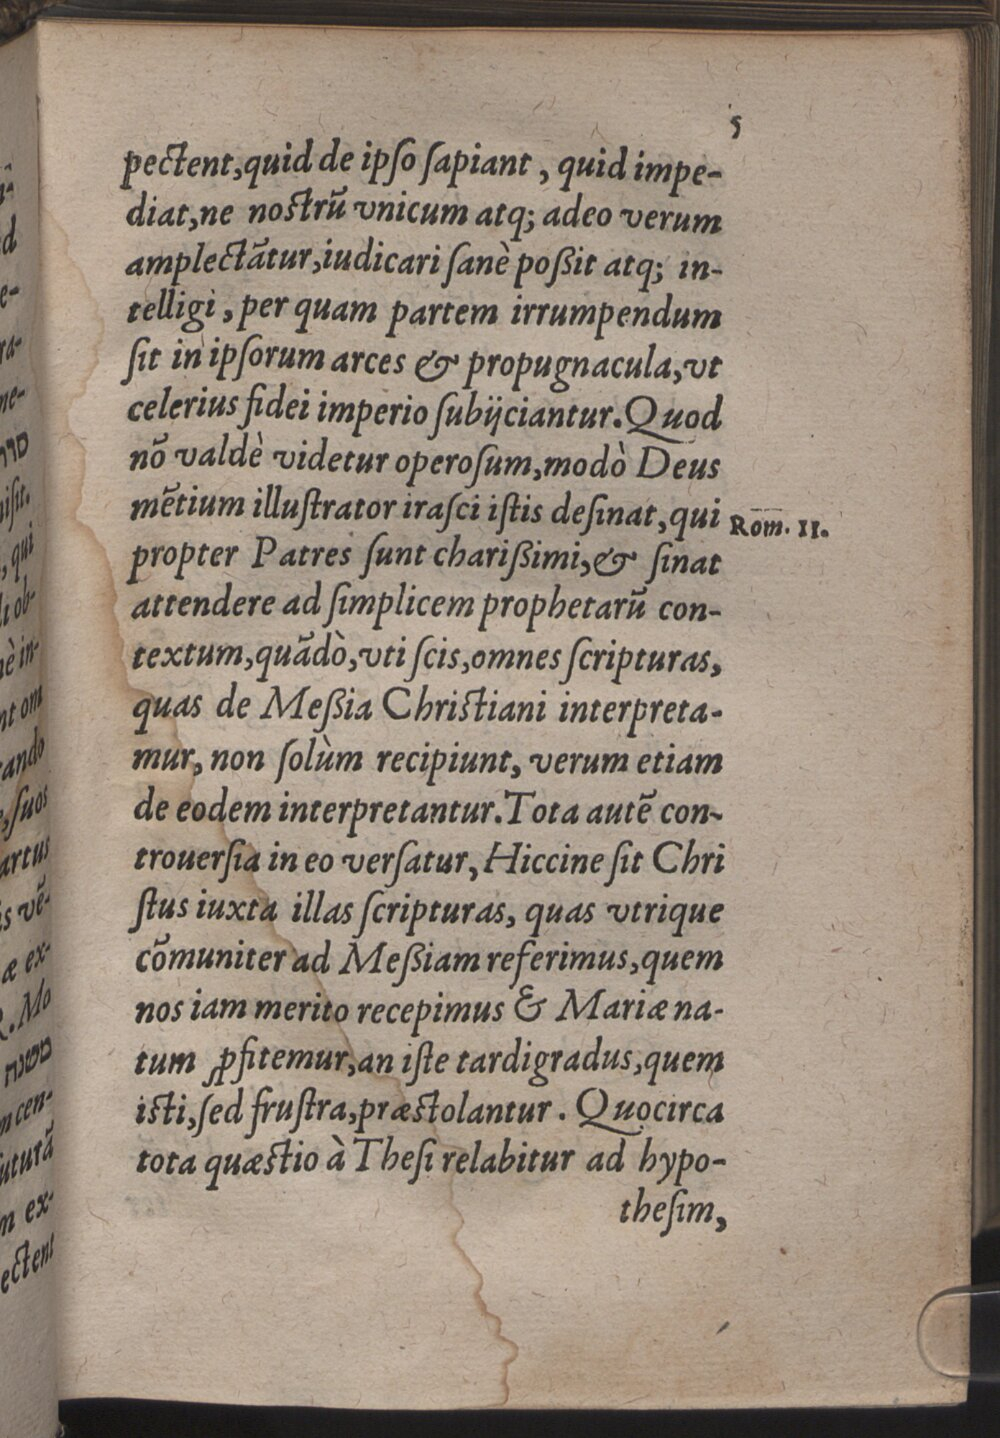 5
pectent, quid de ipso sapiant, quid impe-
diat, ne nostrũ vnicum atq; adeo verum
amplectãtur, iudicari sanè poßit atq; in-
telligi, per quam partem irrumpendum
sit in ipsorum arces & propugnacula, vt
celerius fidei imperio subijciantur. Quod
nõ valdè videtur operosum, modò Deus
mẽtium illustrator irasci istis desinat, qui
Rom. 11.
propter Patres sunt charißimi, & sinat
attendere ad simplicem prophetarũ con-
textum, quãdò, vti scis, omnes scripturas,
quas de Meßia Christiani interpreta-
mur, non solùm recipiunt, verum etiam
de eodem interpretantur. Tota autẽ con-
trouersia in eo versatur, Hiccine sit Chri
stus iuxta illas scripturas, quas vtrique
cõmuniter ad Meßiam referimus, quem
nos iam merito recepimus & Mariæ na-
tum ꝓfitemur, an iste tardigradus, quem
isti, sed frustra, præstolantur. Quocirca
tota quæstio à Thesi relabitur ad hypo-
thesim,